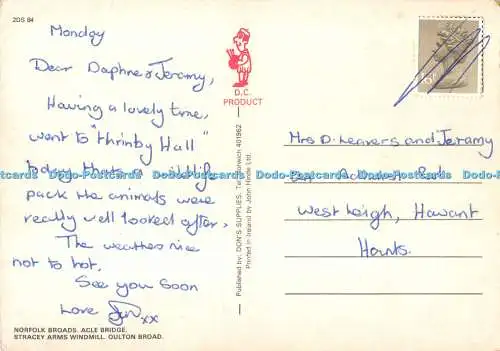 2DS 84
Monday
Dear Daphne & Jeramy,
Having a lovely time,
went to "Thrinby Hall"
today thats a wildlife
park the animals were
really well looked after,
The weather nice
not to hot.
See you soon
Love Jen xx
NORFOLK BROADS. ACLE BRIDGE.
STRACEY ARMS WINDMILL. OULTON BROAD.
D.C.
PRODUCT
Published by: DON'S SUPPLIES. Tel: Norwich 401962
Printed in Ireland by John Hinde Ltd.
Mrs D. Leavers and Jeramy
West Leigh, Havant
Hants.
Dodo-Postcards Dodo-Postcards Dodo-Postcards Dodo-Postcards
www.dodo-postcards.com